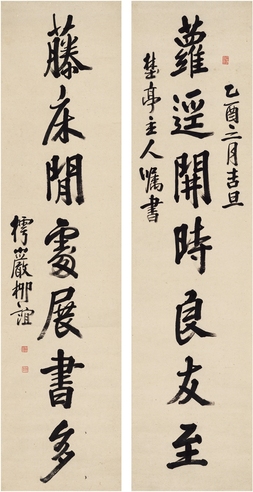 乙酉二月吉旦
蘿逕開時良友至
亭主人囑書
藤床閒處展書多
樗巖柳誼